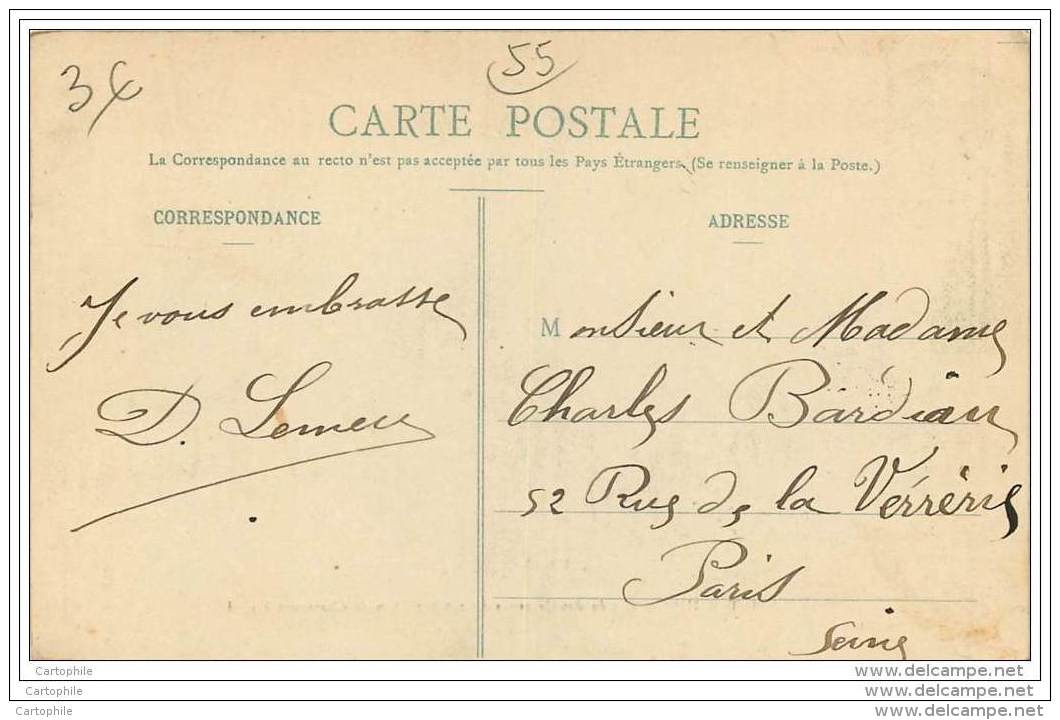 55
CARTE POSTALE
La Correspondance au recto n'est pas acceptée par tous les Pays Étrangers. (Se renseigner à la Poste.)
CORRESPONDANCE
ADRESSE
Je vous embrasse
D.
Monsieur et Madame
Charles
52 Rue de la Verrerie
Paris
Seine
Cartophile
www.delcampe.net
Cartophile
www.delcampe.net
Cartophile
www.delcampe.net